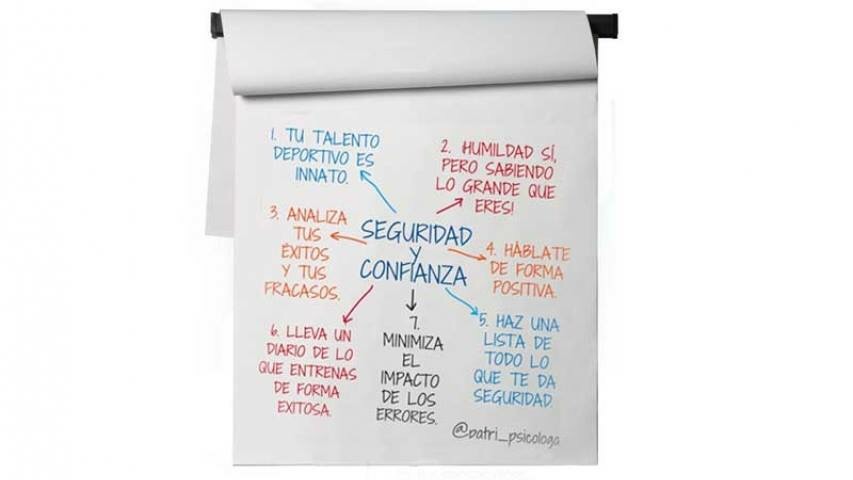 1. TU TALENTO
DEPORTIVO ES
INNATO.
2. HUMILDAD SÍ,
PERO SABIENDO
LO GRANDE QUE
ERES!
SEGURIDAD
Y
CONFIANZA
3. ANALIZA
TUS
ÉXITOS
Y TUS
FRACASOS.
4. HÁBLATE
DE FORMA
POSITIVA.
5. HAZ UNA
LISTA DE
TODO LO
QUE TE DA
SEGURIDAD.
6. LLEVA UN
DIARIO DE LO
QUE ENTRENAS
DE FORMA
EXITOSA.
7.
MINIMIZA
EL
IMPACTO
DE LOS
ERRORES.
@patri_psicologa